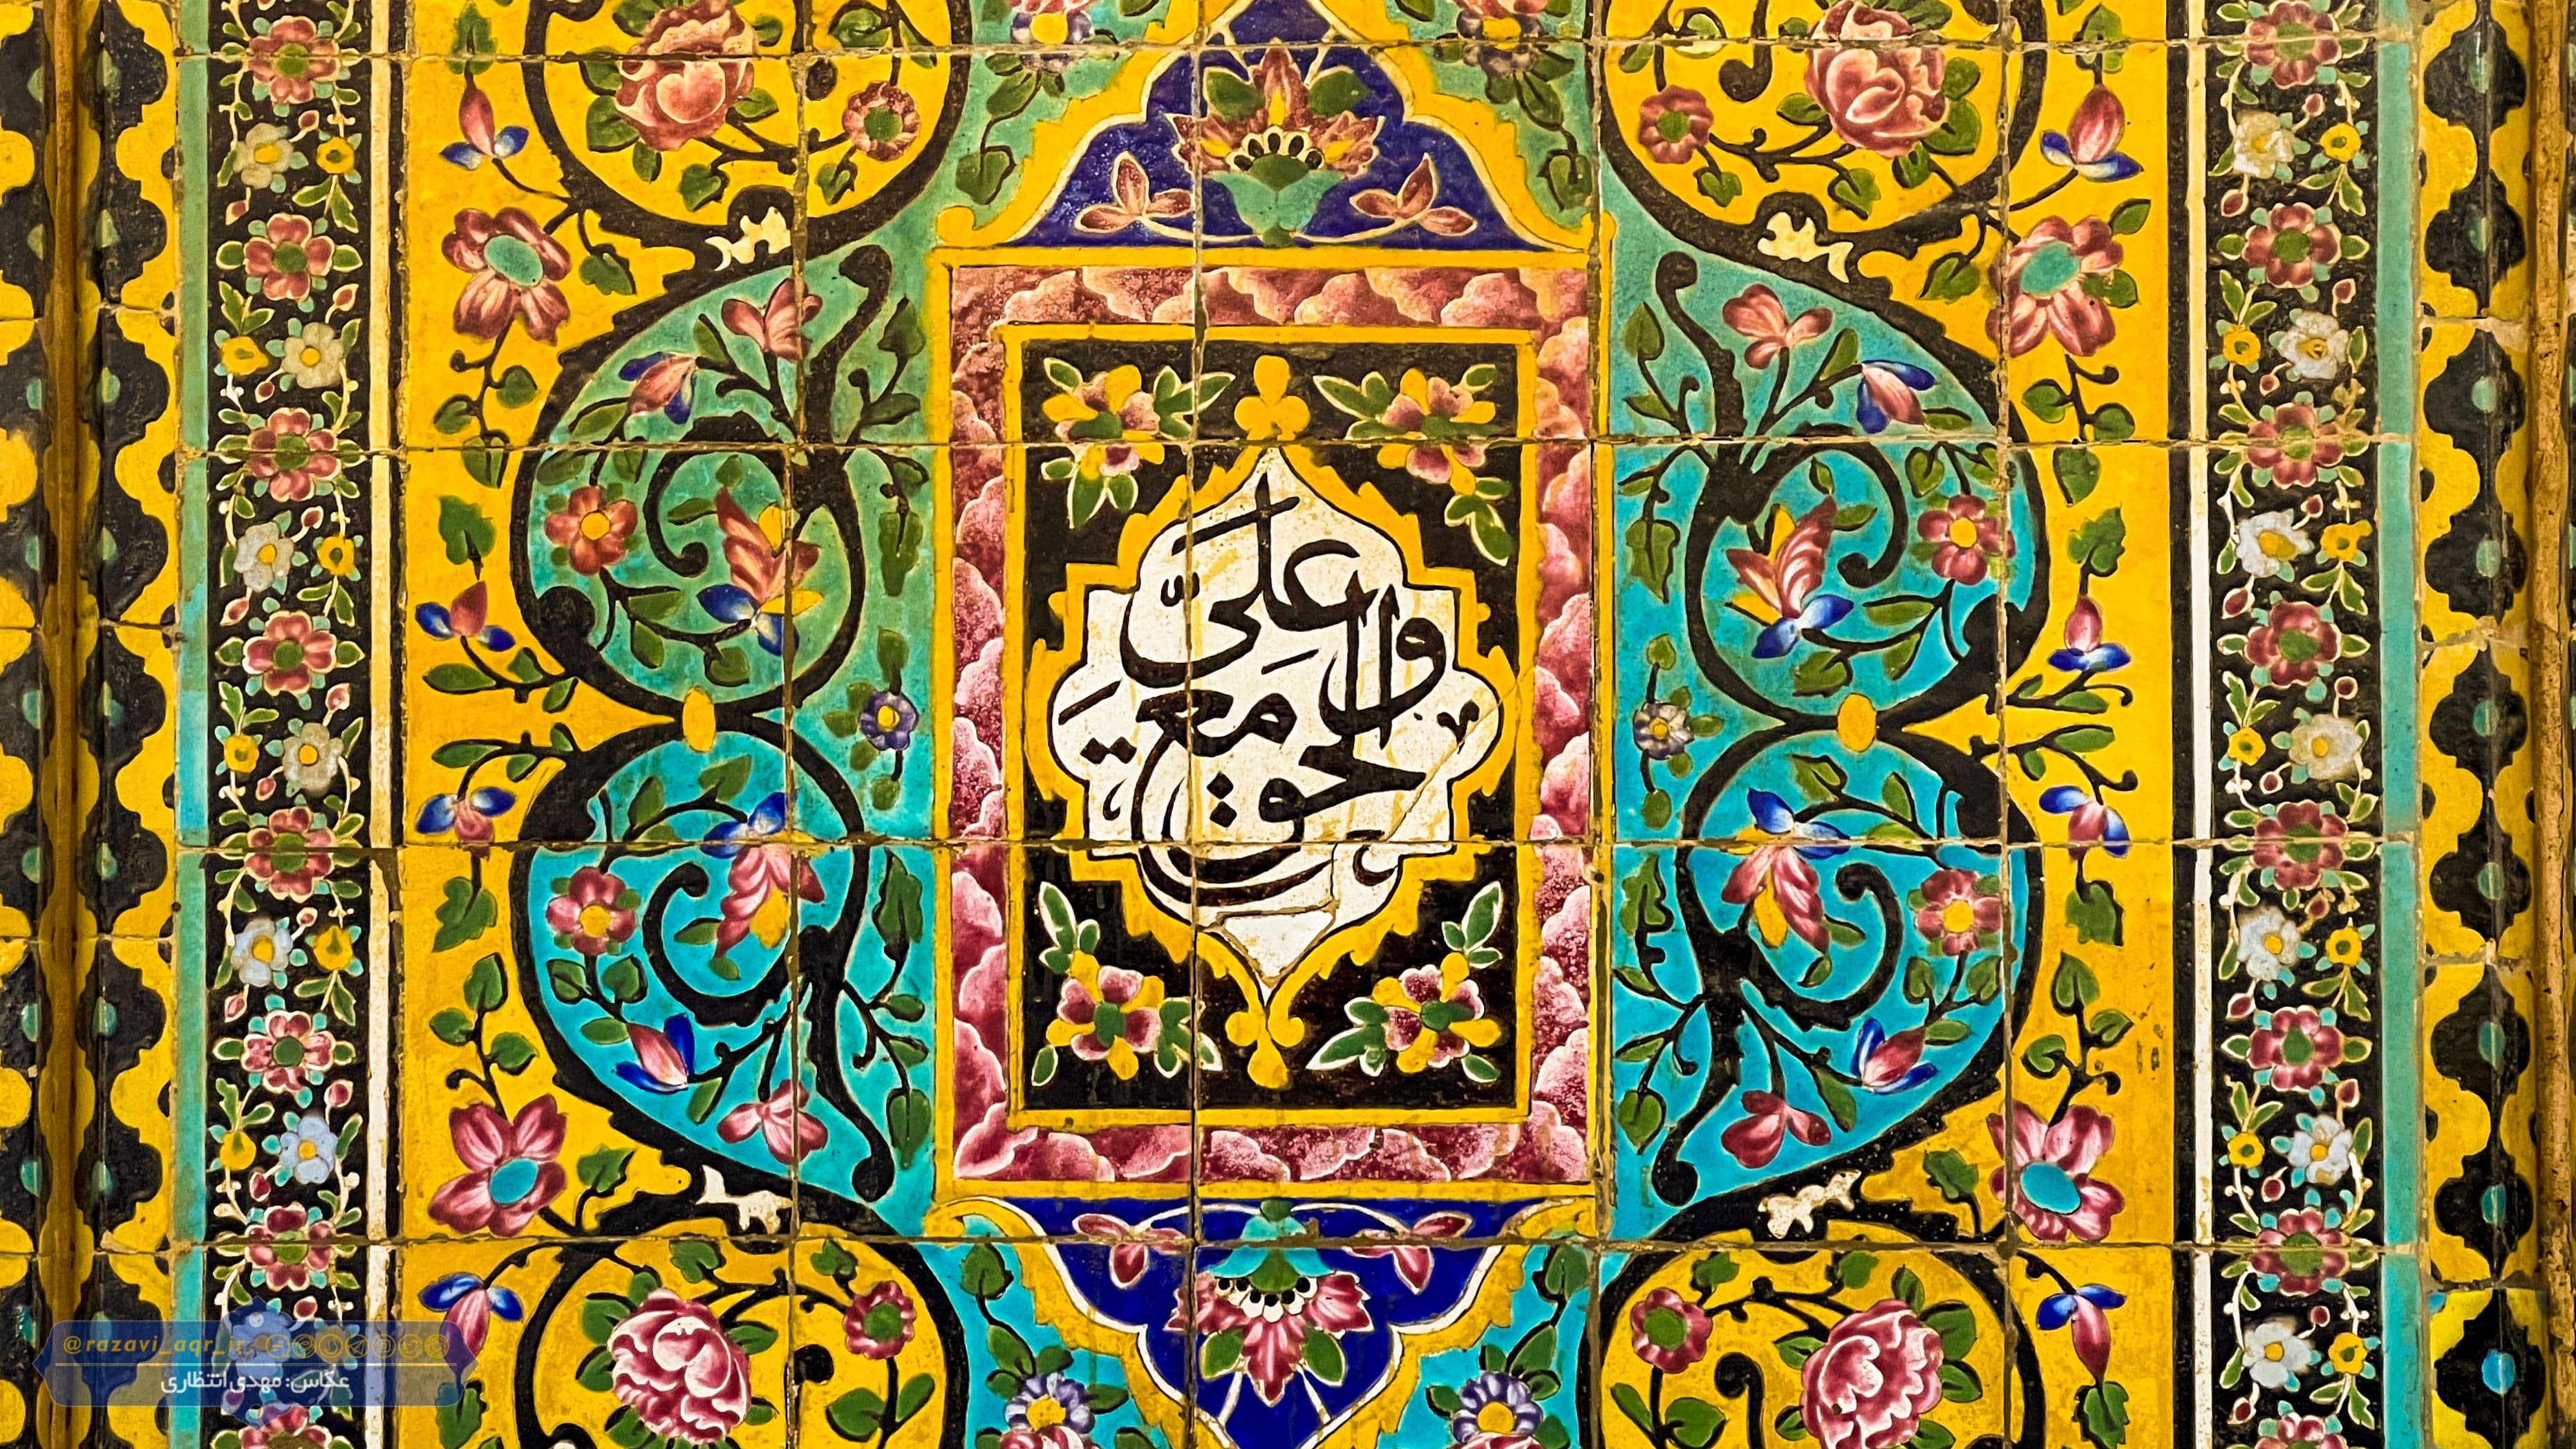 والحق مع علیّ
@razavi_aqr_ir
عکاس: مهدی انتظاری